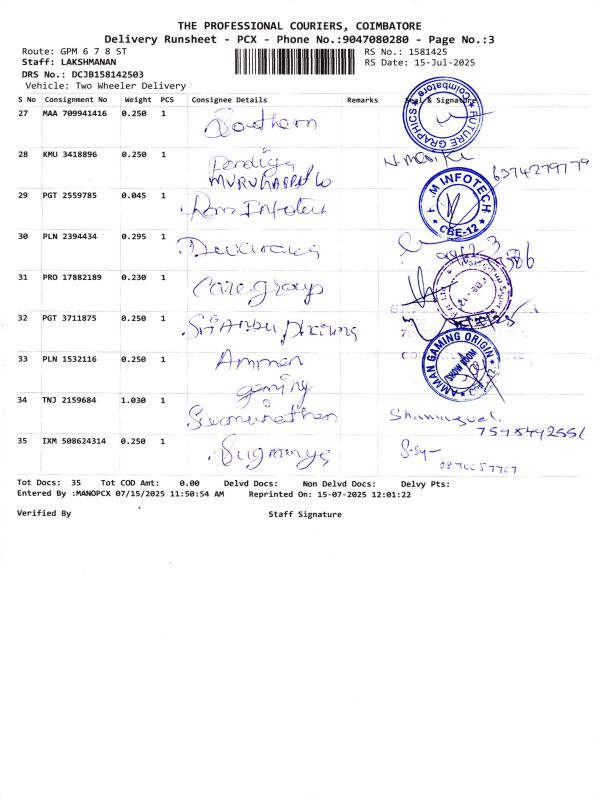 THE PROFESSIONAL COURIERS, COIMBATORE
Delivery Runsheet - PCX - Phone No.:9047080280 - Page No.:3
Route: GPM 6 7 8 ST
RS No.: 1581425
Staff: LAKSHMANAN
RS Date: 15-Jul-2025
DRS No.: DCJB158142503
Vehicle: Two Wheeler Delivery
S No Consignment No Weight PCS Consignee Details Remarks Seal & Signature
27 MAA 709941416 0.250 1 Southern
FUTURE GRAPHICS Coimbatore
28 KMU 3418896 0.250 1
6374279779
29 PGT 2559785 0.045 1 Ram Infotech
M INFOTECH CBE-12
30 PLN 2394434 0.295 1
31 PRO 17882189 0.230 1 Care groups
32 PGT 3711875 0.250 1
33 PLN 1532116 0.250 1 Amman
gaming
AMMAN GAMING ORIGIN SHOW ROOM
34 TNJ 2159684 1.030 1
35 IXM 508624314 0.250 1
Tot Docs: 35 Tot COD Amt: 0.00 Delvd Docs: Non Delvd Docs: Delvy Pts:
Entered By :MANOPCX 07/15/2025 11:50:54 AM Reprinted On: 15-07-2025 12:01:22
Verified By Staff Signature